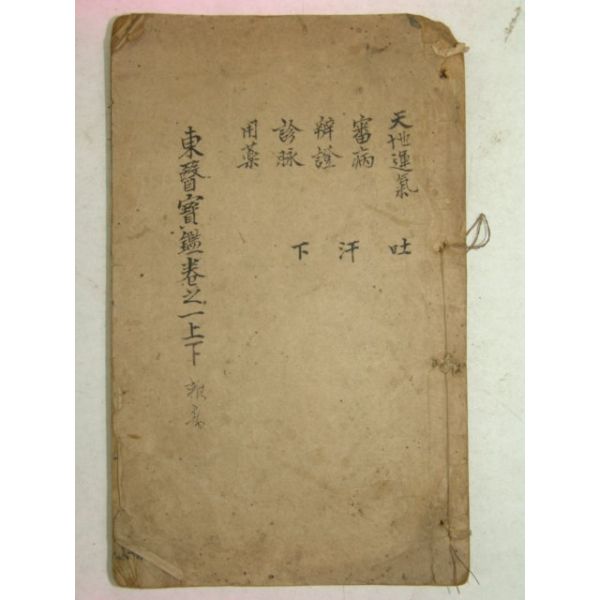 天地運氣
審病
辨證
診脉
用藥
吐
汗
下
東醫寳鑑卷之一上下